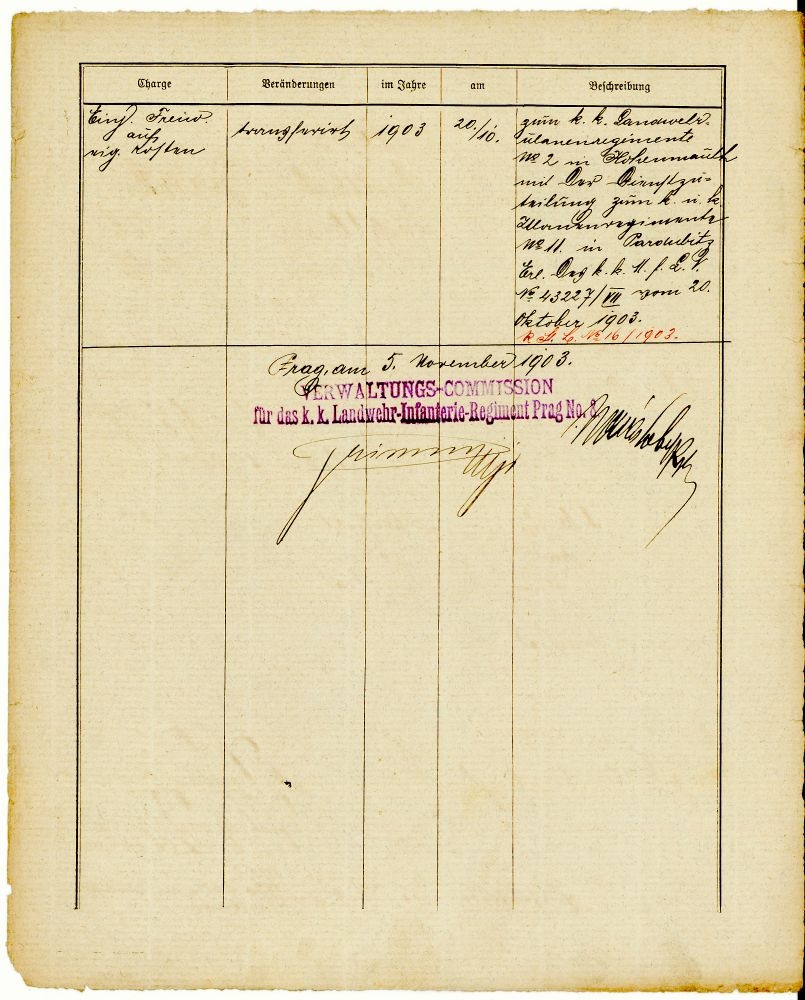 Charge
Veränderungen
im Jahre
am
Beschreibung
Einj. Freiw.
auf
eig. Kosten
transferirt
1903
20./10.
zum k. k. Landwehr-
ulanenregimente
№ 2 in Hohenmauth
mit der Dienstzu-
teilung zum k. u. k.
Ulanenregimente
№ 11. in Pardubitz
Erl. des k. k. M. f. L. V.
№ 43227/VII vom 20.
Oktober 1903.
№ 16/1903.
Prag, am 5. November 1903.
VERWALTUNGS-COMMISSION
für das k. k. Landwehr-Infanterie-Regiment Prag No. 8.